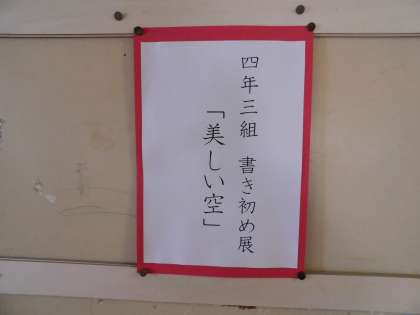 四年三組　書き初め展
「美しい空」